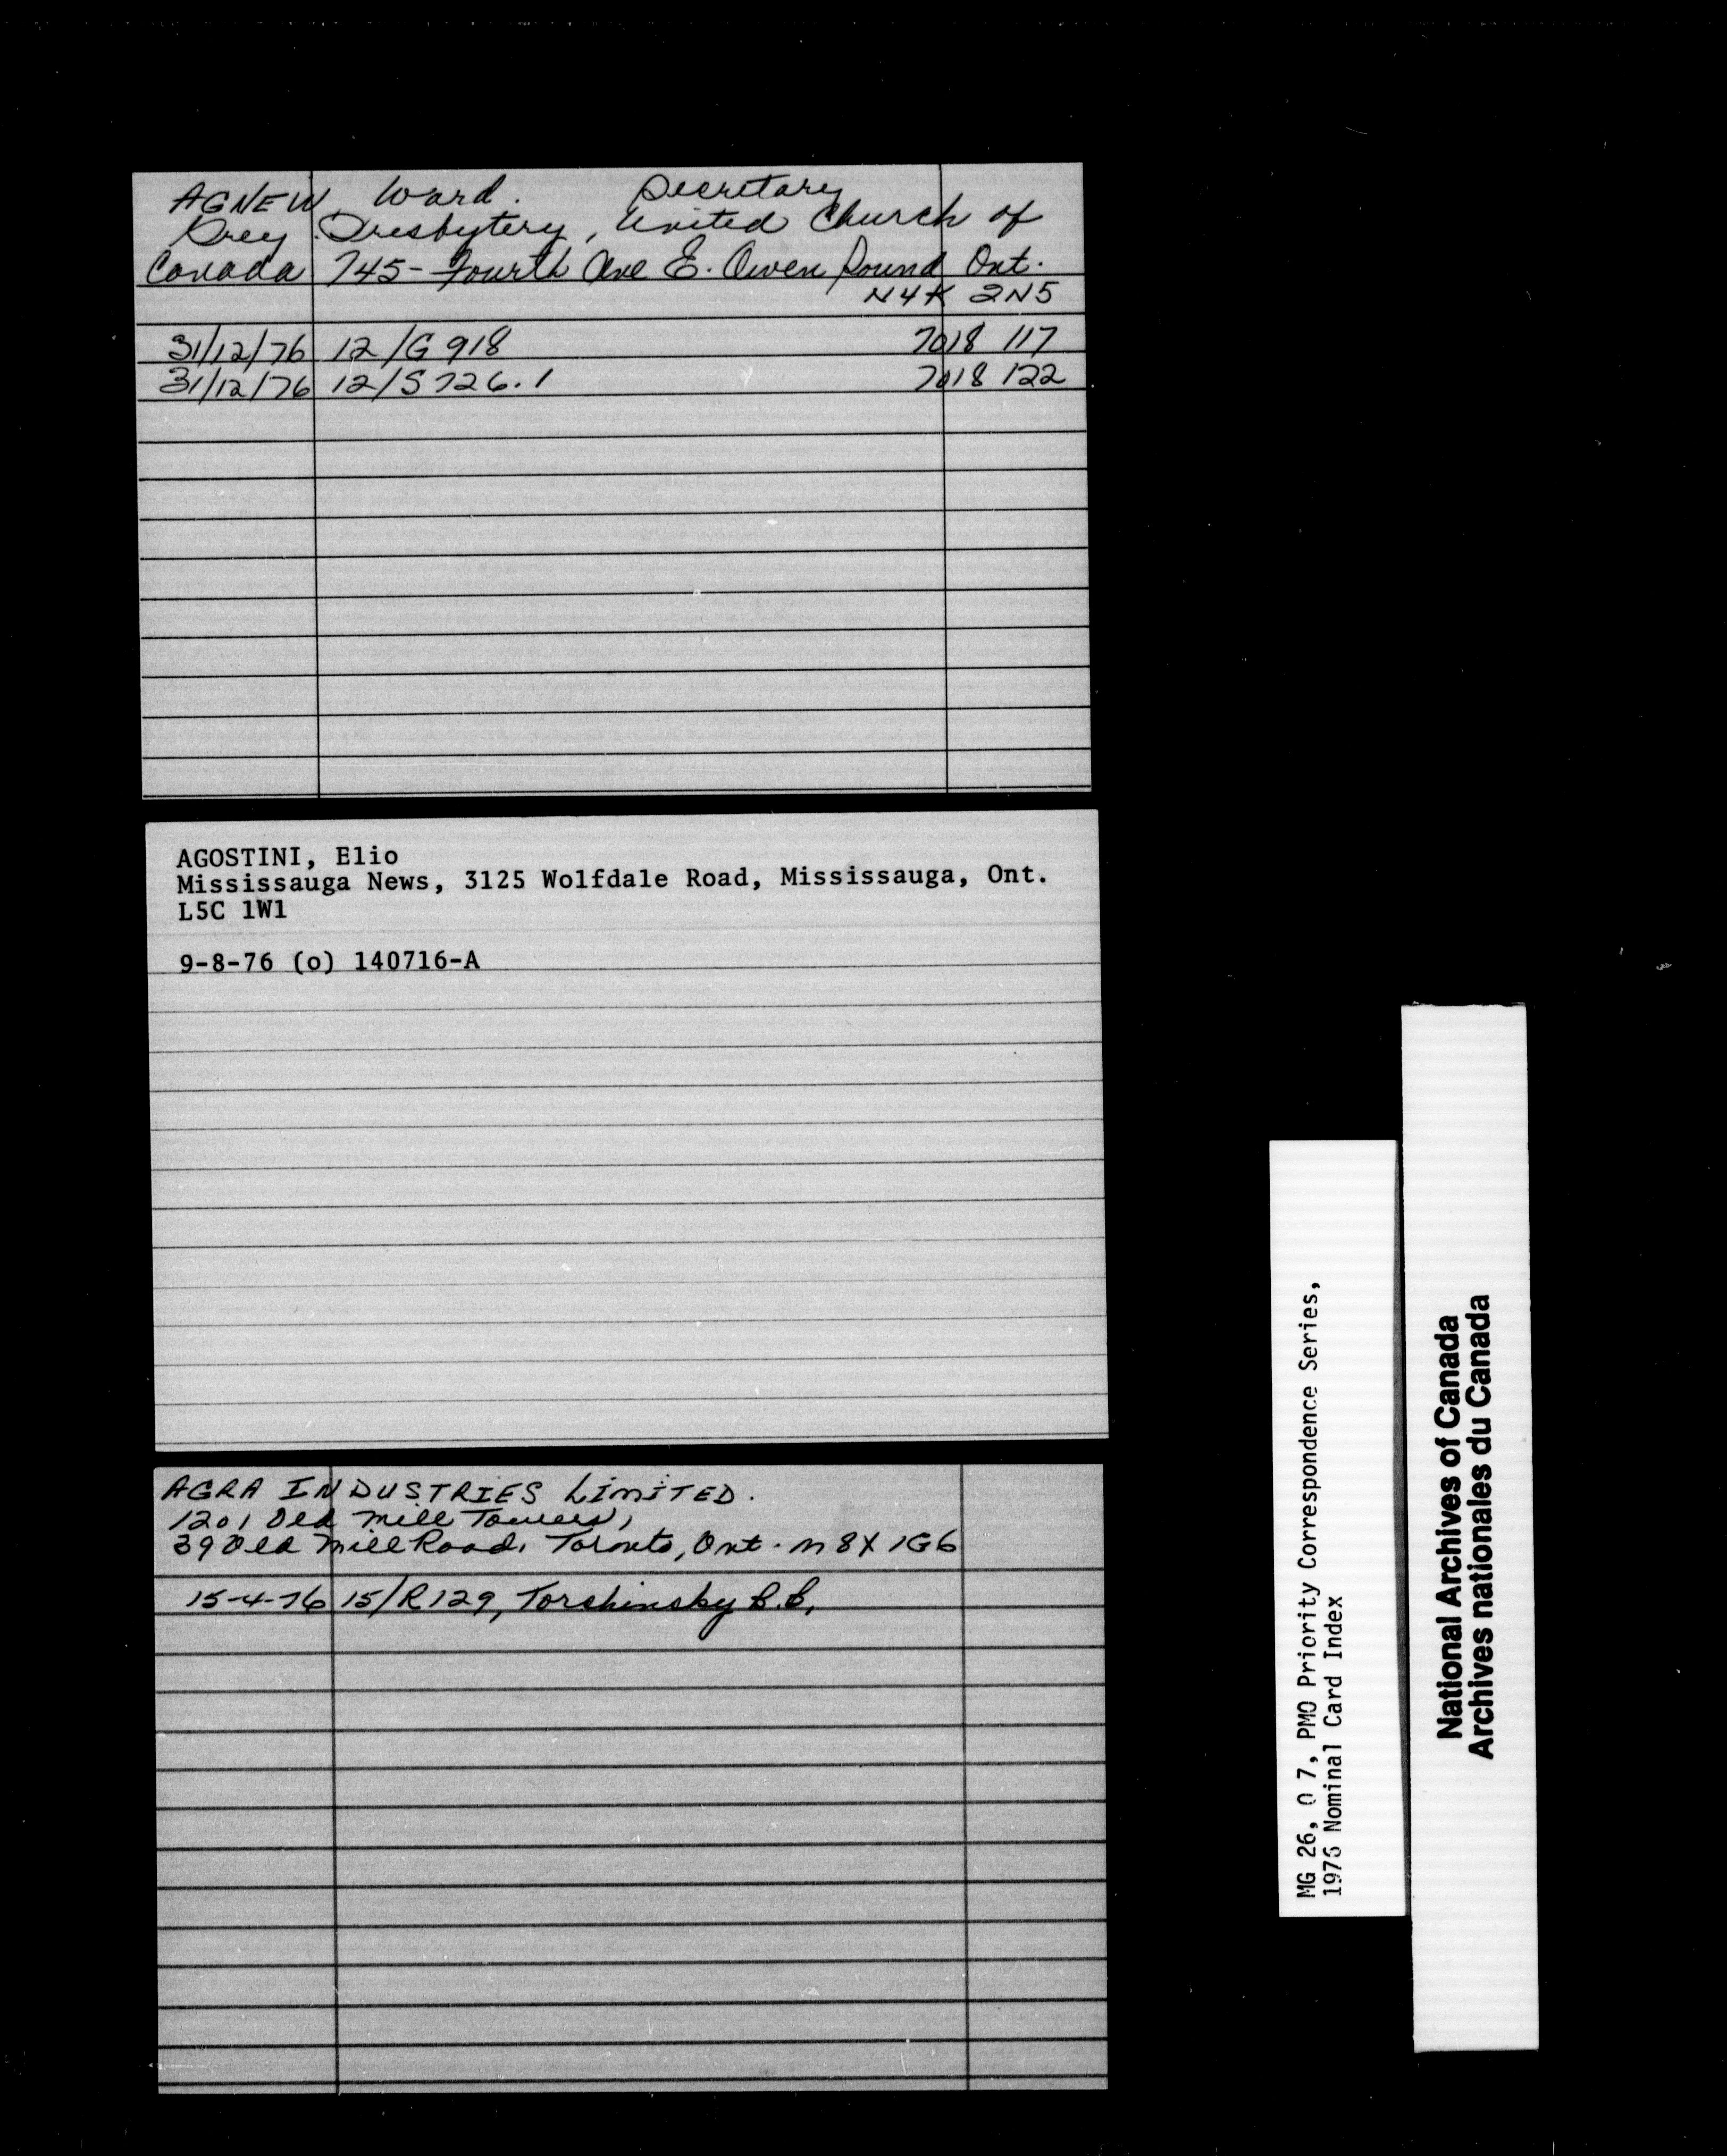 AGNEW, Ward. Secretary
Grey Presbytery, United Church of
Canada 745 - Fourth Ave E. Owen Sound Ont.
N4K 2N5
31/12/76 12/G 918 7018 117
31/12/76 12/S 726.1 7018 122
AGOSTINI, Elio
Mississauga News, 3125 Wolfdale Road, Mississauga, Ont.
L5C 1W1
9-8-76 (o) 140716-A
AGRA INDUSTRIES LIMITED.
1201 Old Mill Towers,
39 Old Mill Road, Toronto, Ont. M8X 1G6
15-4-76 15/R129, Torchinsky B.B,
MG 26, O 7, PMO Priority Correspondence Series,
1976 Nominal Card Index
National Archives of Canada
Archives nationales du Canada